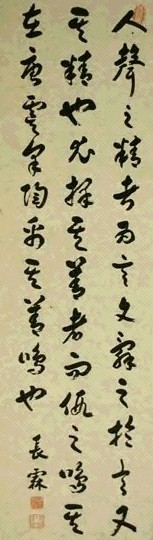 人聲之精者為言文辭之於言又
其精也尤擇其善者而假之鳴其
在唐虞咎陶禹其善鳴也
長霖